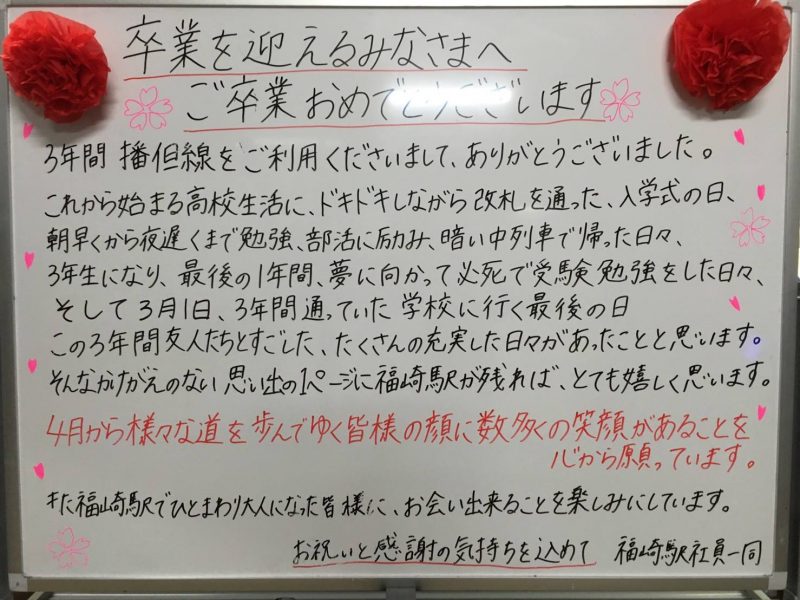 卒業を迎えるみなさまへ
ご卒業おめでとうございます
3年間 播但線をご利用くださいまして、ありがとうございました。
これから始まる高校生活に、ドキドキしながら改札を通った、入学式の日、
朝早くから夜遅くまで勉強、部活に励み、暗い中列車で帰った日々、
3年生になり、最後の1年間、夢に向かって必死で受験勉強をした日々、
そして3月1日、3年間通っていた学校に行く最後の日
この3年間友人たちとすごした、たくさんの充実した日々があったことと思います。
そんなかけがえのない思い出の1ページに福崎駅が残れば、とても嬉しく思います。
4月から様々な道を歩んでゆく皆様の顔に数多くの笑顔があることを
心から願っています。
また福崎駅でひとまわり大人になった皆様に、お会い出来ることを楽しみにしています。
お祝いと感謝の気持ちを込めて 福崎駅社員一同